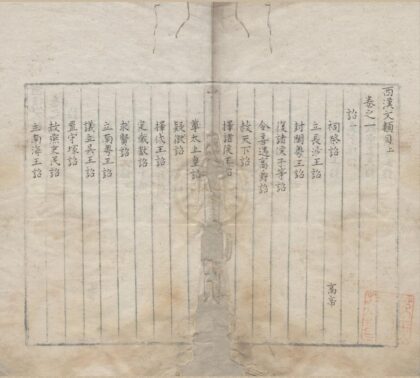 西漢文類目上
卷之一
詔一
祠祭詔 高帝
立長沙王詔
封閩粵王詔
復諸侯子等詔
令吏遇高爵詔
赦天下詔
擇諸侯王詔
尊太上皇詔
疑獄詔
擇代王詔
定獻敕詔
求賢詔
立南粵王詔
議立吳王詔
置守冢詔
赦燕吏民詔
立南海王詔